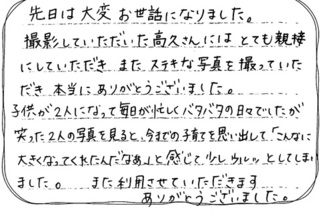 先日は大変お世話になりました。
撮影していただいた高久さんにはとても親接
にしていただき また ステキな写真を撮っていた
だき 本当にありがとうございました。
子供が2人になって毎日が忙しくバタバタの日々でしたが
笑った2人の写真を見ると、今までの子育てを思い出して「こんなに
大きくなってくれたんだなぁ」と感じて少しウルッとしてしまい
ました。 また利用させていただきます
ありがとうございました。